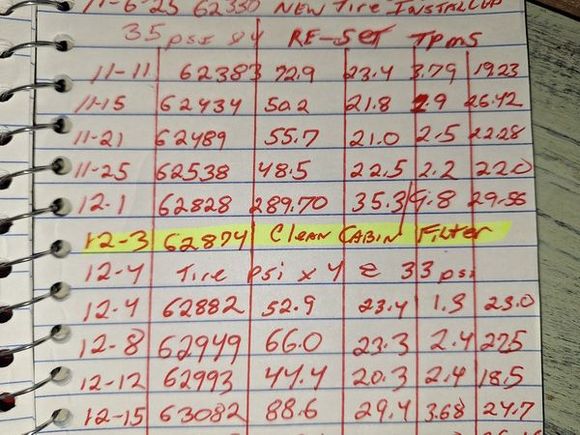 11-6-25 62330 NEW Tire INSTALLED
35 psi x4 RE-SET TPMS
11-11 62383 72.9 23.4 3.79 19.23
11-15 62434 50.2 21.8 1.9 26.42
11-21 62489 55.7 21.0 2.5 22.28
11-25 62538 48.5 22.5 2.2 22.0
12.1 62828 289.70 35.3 9.8 29.56
12-3 62874 Clean CABIN Filter
12-4 Tire psi x 4 @ 33 psi
12.4 62882 52.9 23.4 1.3 23.0
12-8 62949 66.0 23.3 2.4 27.5
12-12 62993 44.4 20.3 2.4 18.5
12-15 63082 88.6 29.4 3.68 24.7